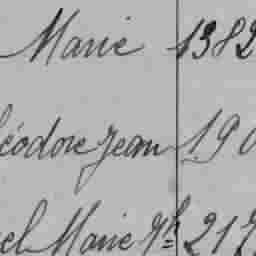 Marie 1382
éodore Jean 190
el Marie Jh 217